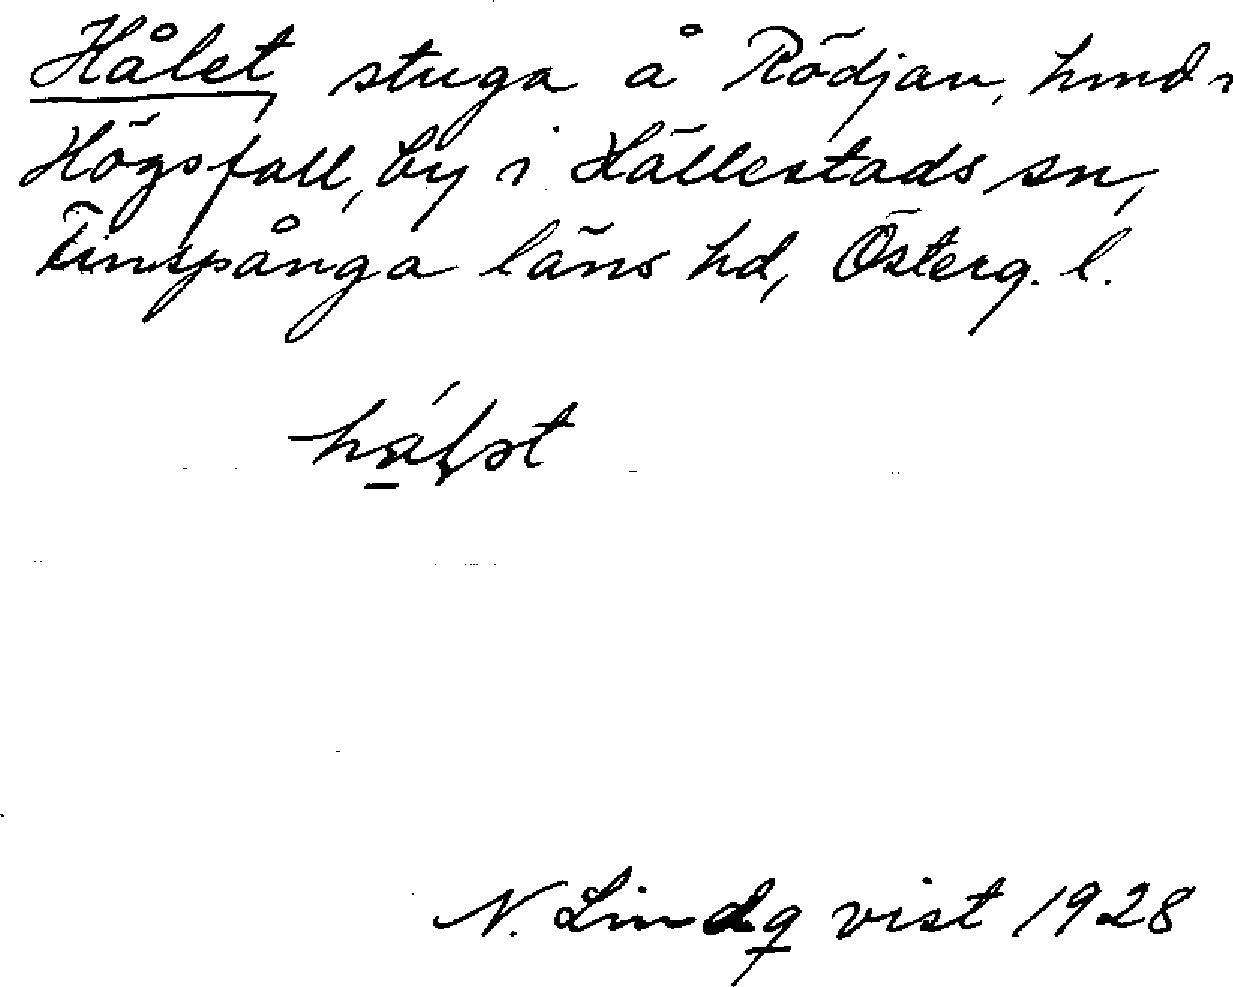 Hålet, stuga å Rödjan, hmd i
Högsfall, by i Hällestads sn,
Finspånga läns hd, Österg. l.
N. Lindqvist 1928